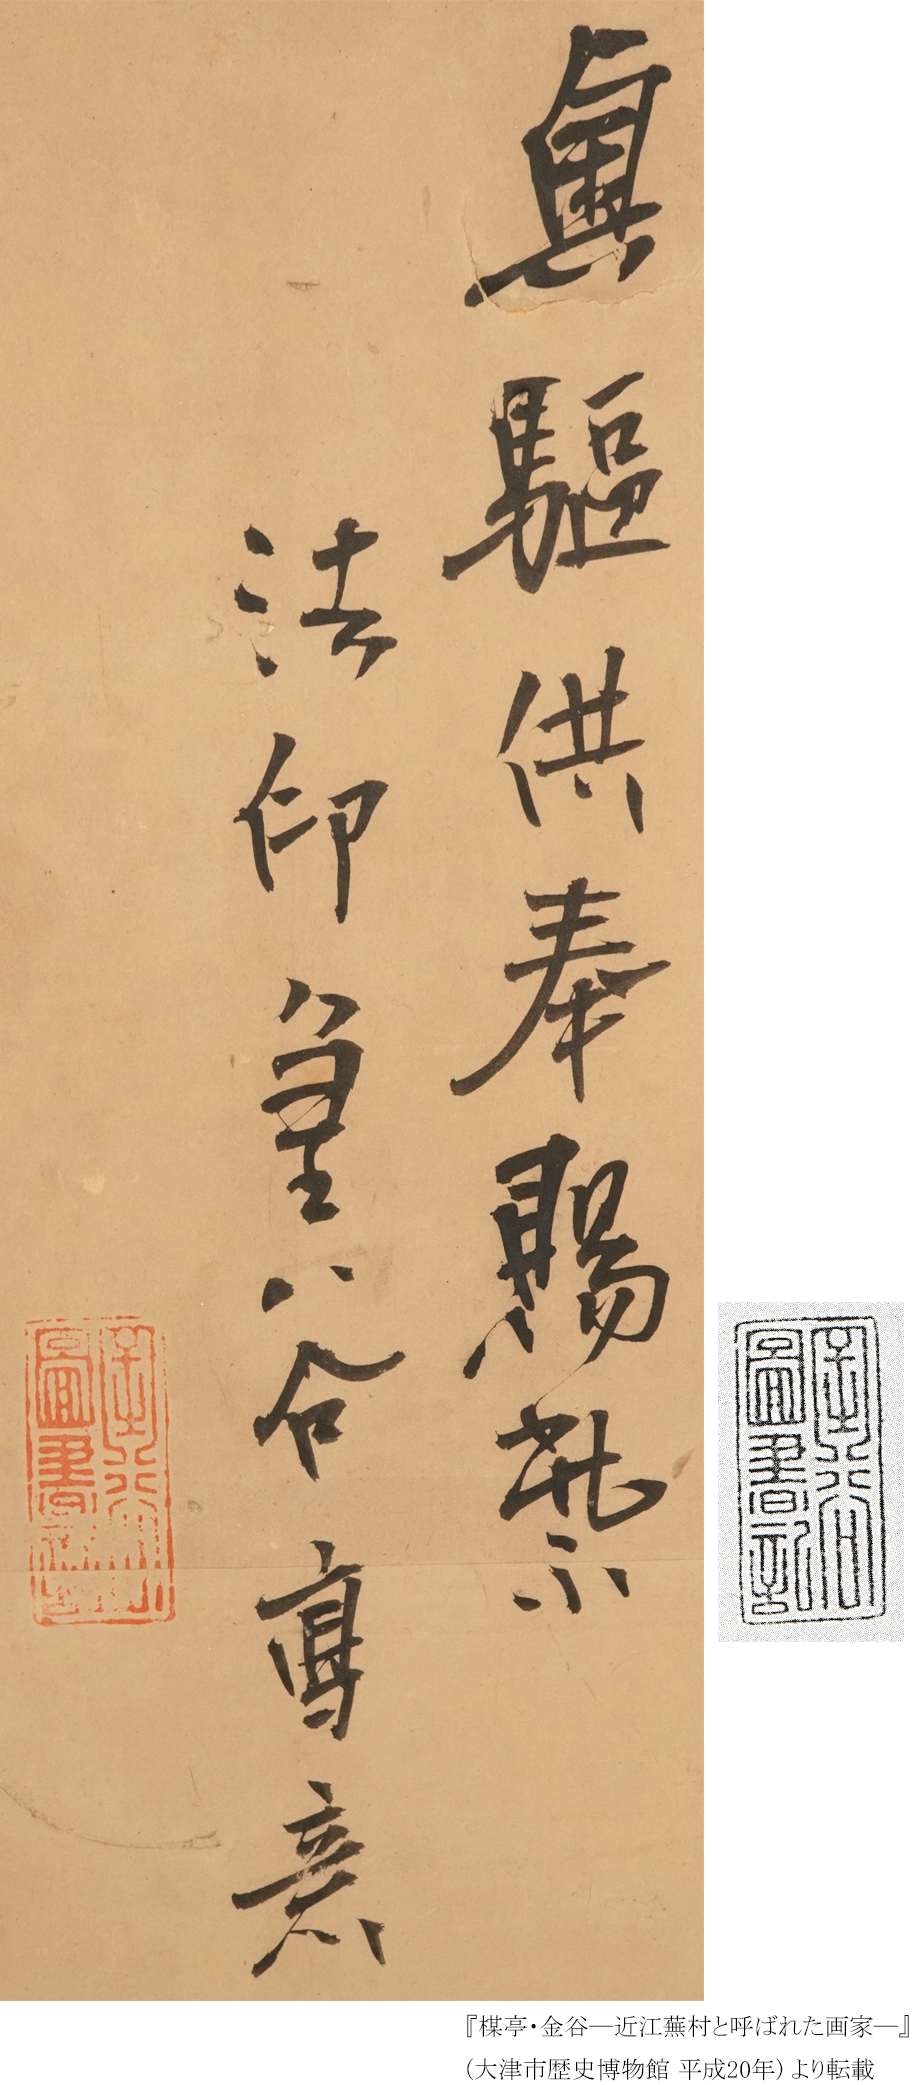 奧驅供奉賜紫
法印金谷寫意
圖書
圖書記
『楳亭・金谷―近江蕪村と呼ばれた画家―』
(大津市歴史博物館 平成20年)より転載